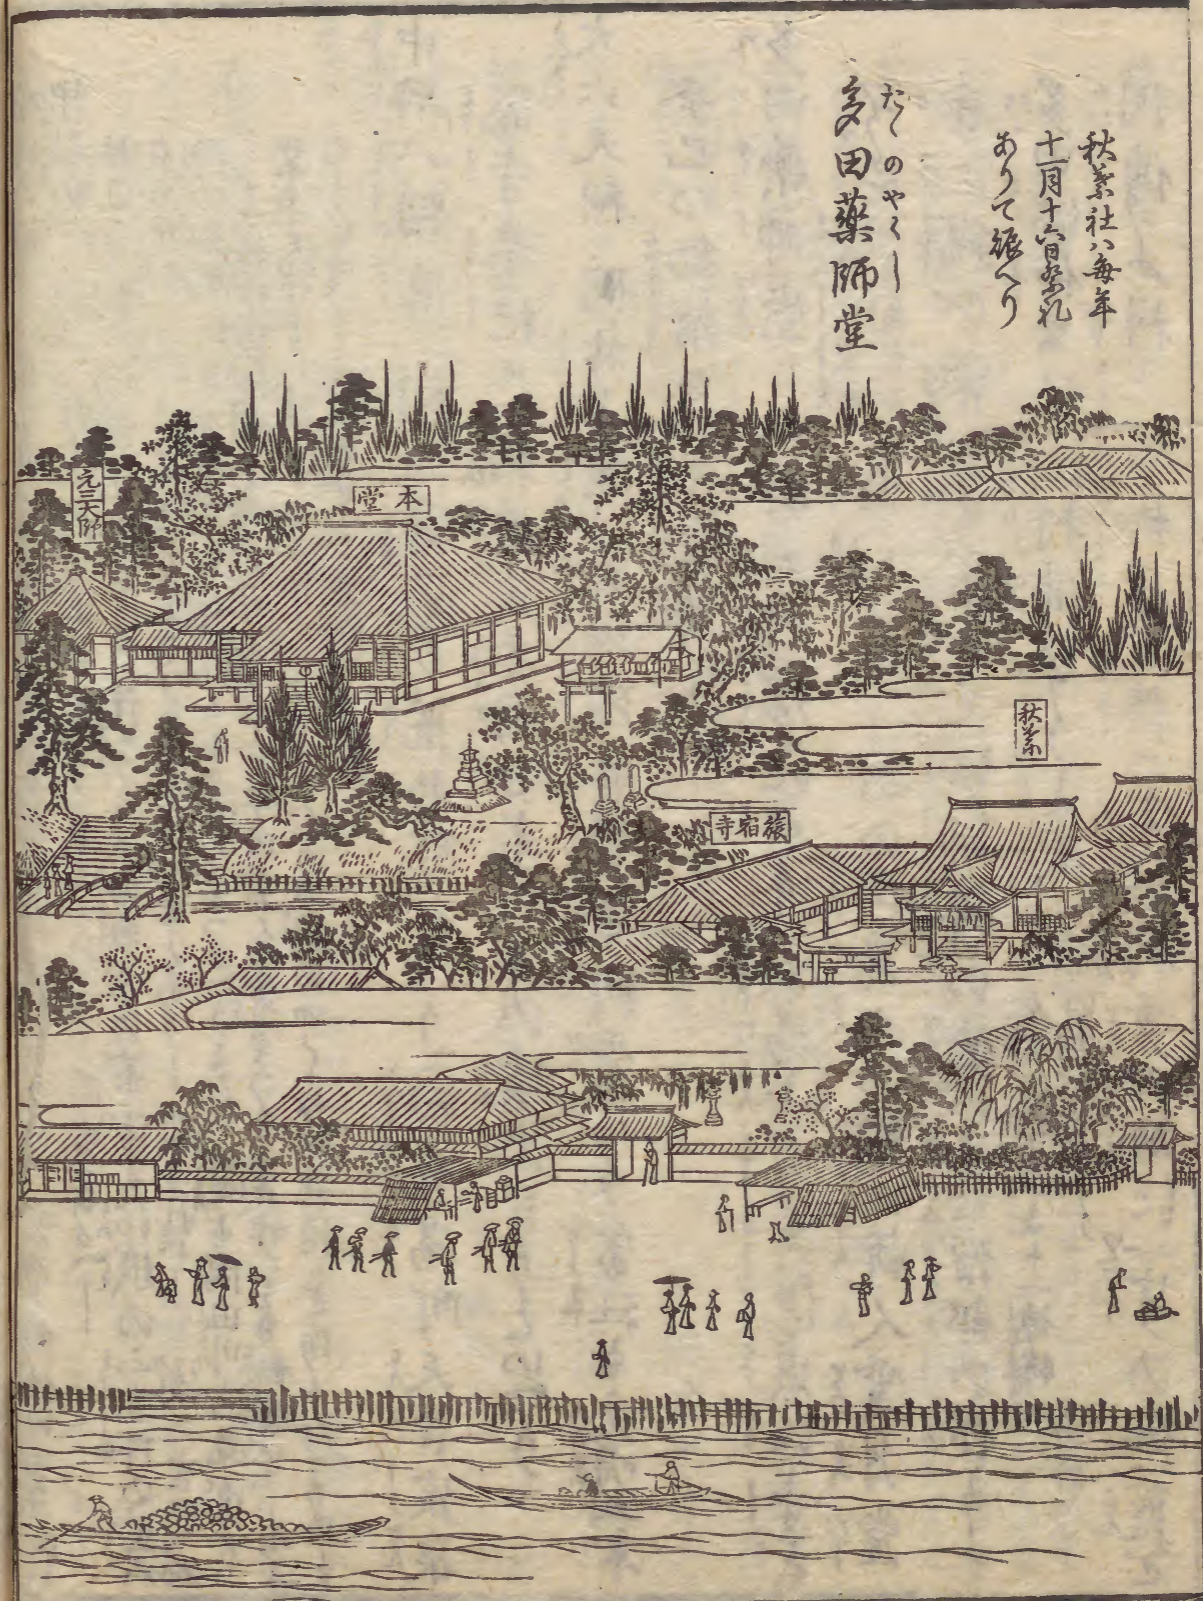 秋葉社ハ毎年
十一月十六日祭礼
ありて賑へり
たゝのやくし
多田薬師堂
本堂
元三大師
秋葉
旅宿寺